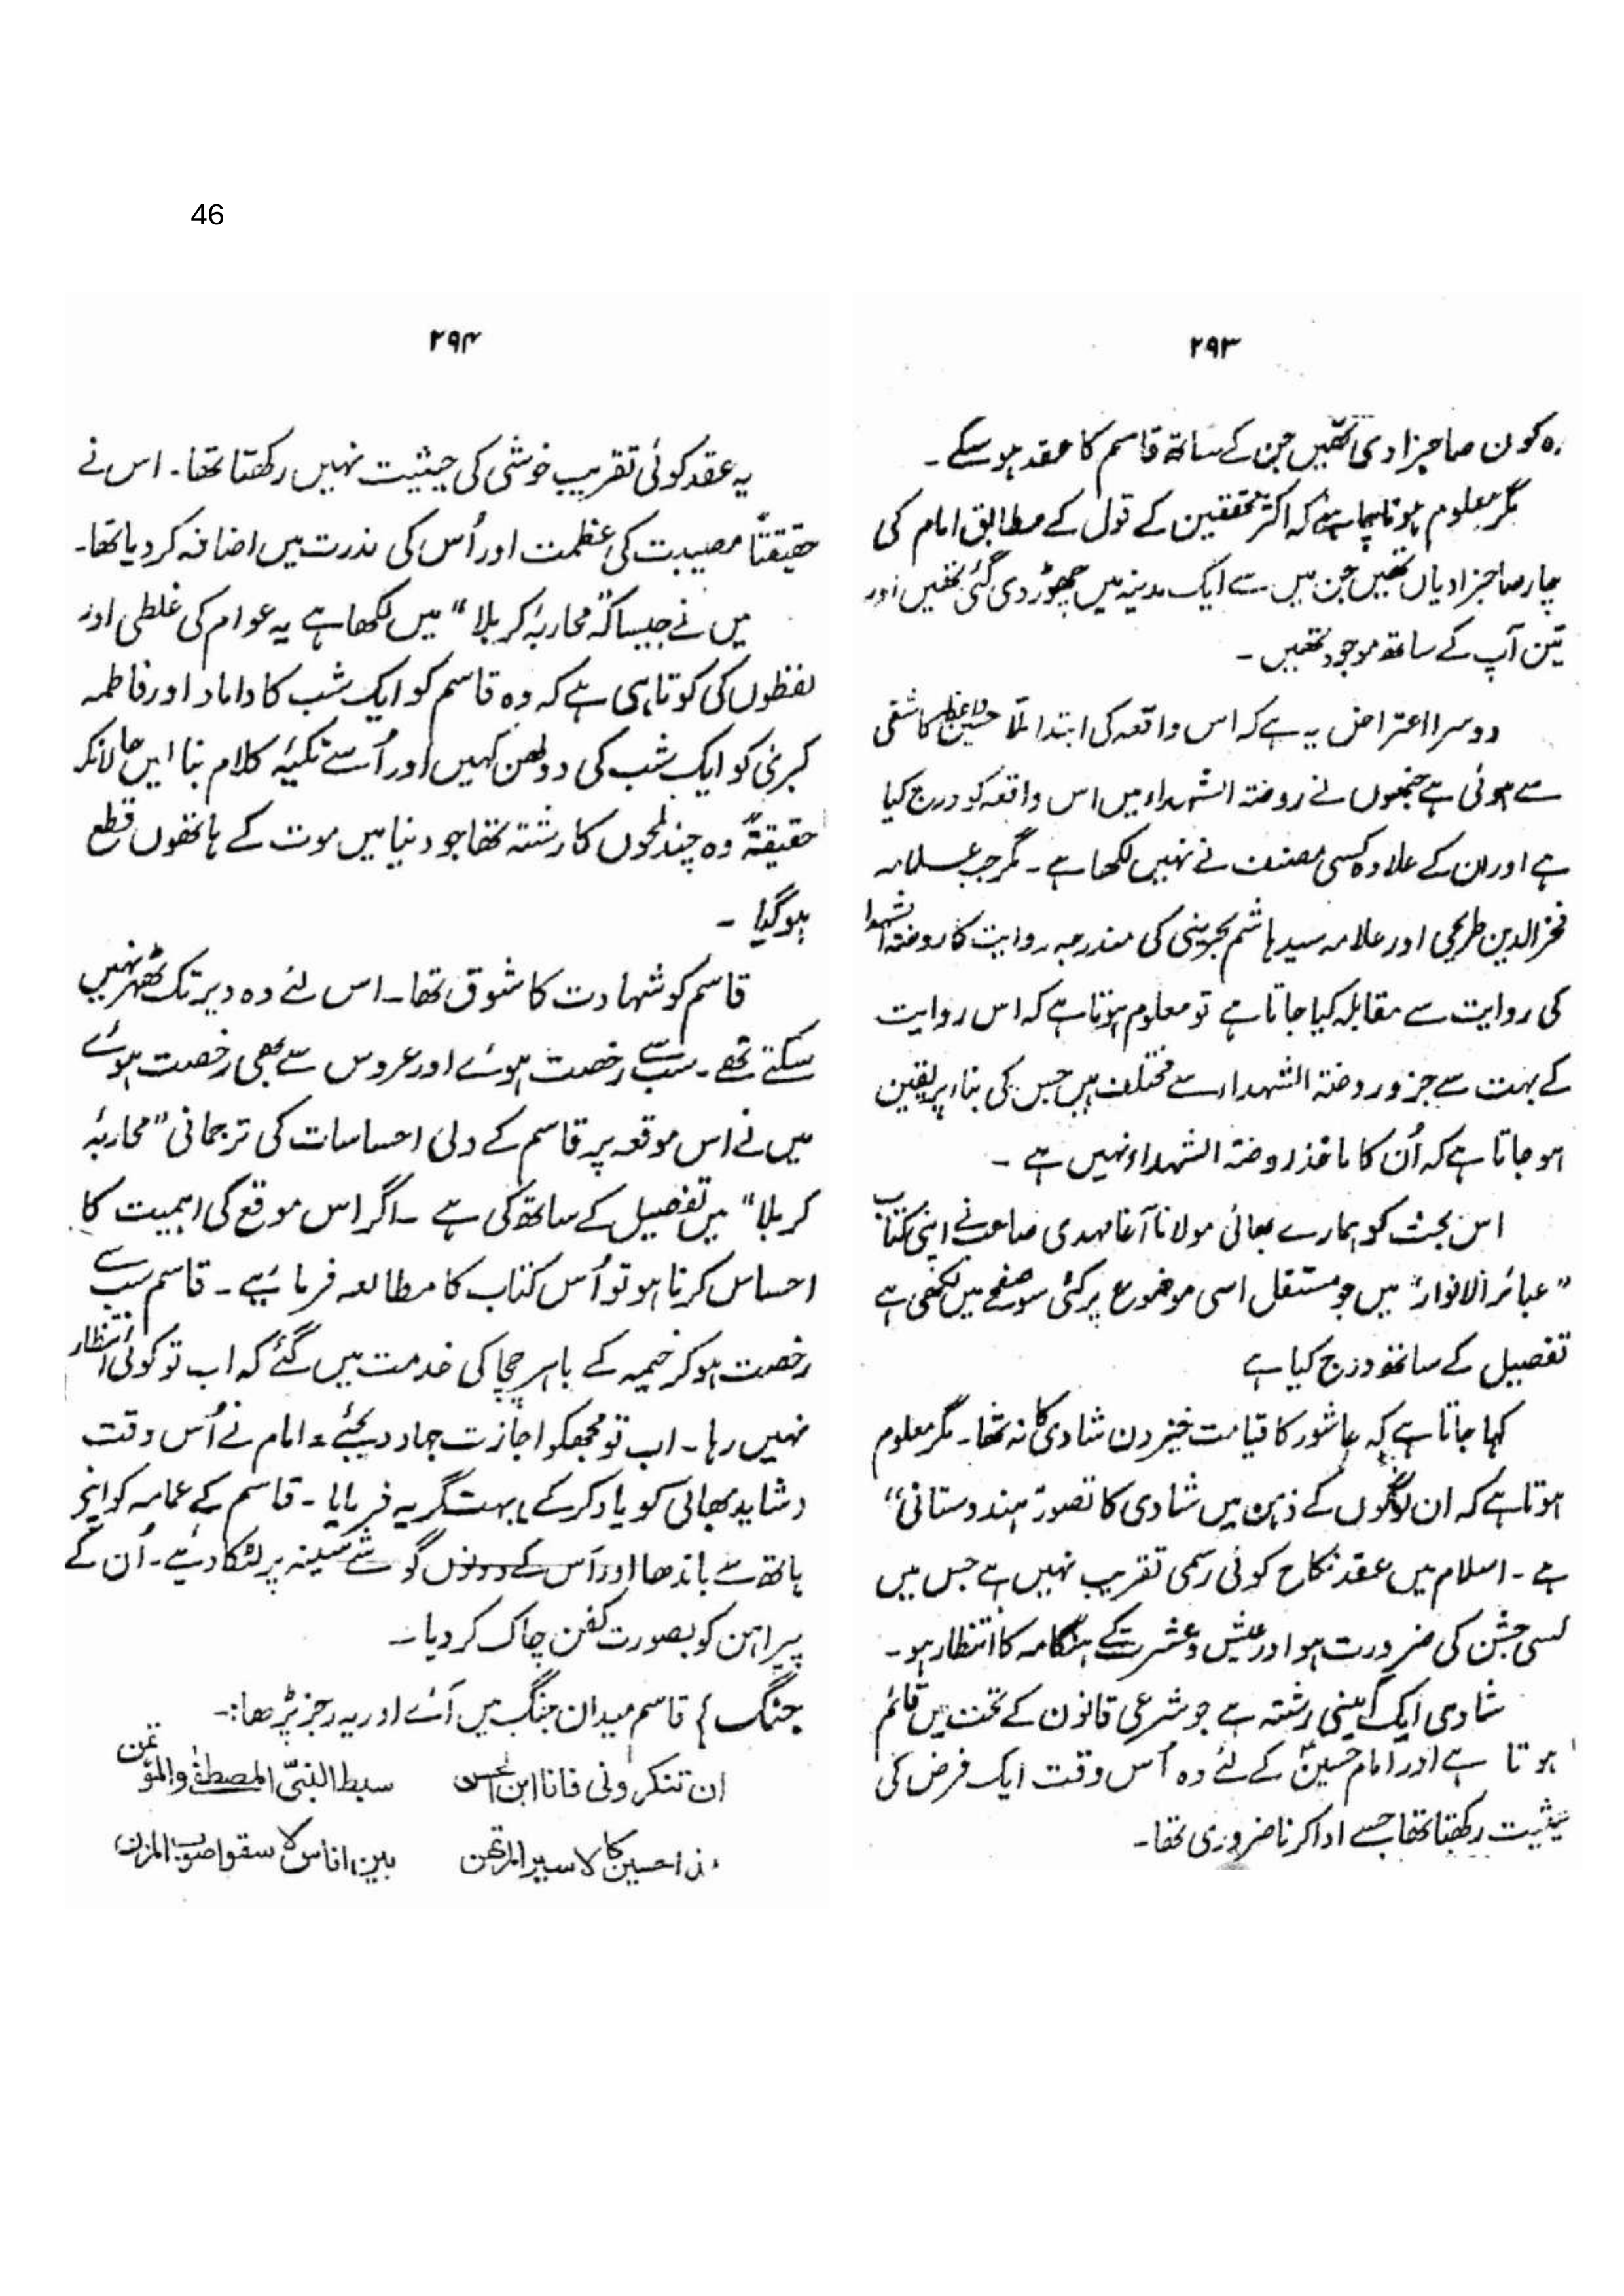 46
۲۹۳
وہ کون صاحبزادی تھیں جن کے ساتھ قاسم کا عقد ہو سکے۔
مگر معلوم ہونا چاہئے کہ اکثر محققین کے قول کے مطابق امام کی
چار صاحبزادیاں تھیں جن میں سے ایک مدینہ میں چھوڑ دی گئی تھیں اور
تین آپ کے ساتھ موجود تھیں۔
دوسرا اعتراض یہ ہے کہ اس واقعہ کی ابتدا ملّا حسین واعظ کاشفی
سے ہوئی ہے جنھوں نے روضتہ الشہداء میں اس واقعہ کو درج کیا
ہے اور ان کے علاوہ کسی مصنف نے نہیں لکھا ہے۔ مگر جب علامہ
فخرالدین طریحی اور علامہ سید ہاشم بحرینی کی مندرجہ روایت کا روضتہ الشہدا
کی روایت سے مقابلہ کیا جاتا ہے تو معلوم ہوتا ہے کہ اس روایت
کے بہت سے جزو روضتہ الشہداء سے مختلف ہیں جس کی بناء پر یقین
ہو جاتا ہے کہ اُن کا ماخذ روضتہ الشہداء نہیں ہے ۔
اس بحث کو ہمارے بھائی مولانا آغا مہدی صاحب نے اپنی کتاب
”عبائر الانوار“ میں جو مستقل اسی موضوع پر کئی سو صفحے میں لکھی ہے
تفصیل کے ساتھ درج کیا ہے
کہا جاتا ہے کہ عاشور کا قیامت خیز دن شادی کا نہ تھا۔ مگر معلوم
ہوتا ہے کہ ان لوگوں کے ذہن میں شادی کا تصور ”ہندوستانی“
ہے۔ اسلام میں عقد نکاح کوئی رسمی تقریب نہیں ہے جس میں
کسی جشن کی ضرورت ہو اور عیش و عشرت کے ہنگامہ کا انتظار ہو۔
شادی ایک آئینی رشتہ ہے جو شرعی قانون کے تحت میں قائم
ہوتا ہے اور امام حسینؑ کے لئے وہ اُس وقت ایک فرض کی
حیثیت رکھتا تھا جسے ادا کرنا ضروری تھا۔
۲۹۴
یہ عقد کوئی تقریب خوشی کی حیثیت نہیں رکھتا تھا۔ اس نے
حقیقتاً مصیبت کی عظمت اور اُس کی ندرت میں اضافہ کر دیا تھا۔
میں نے جیسا کہ ”محاربۂ کربلا“ میں لکھا ہے یہ عوام کی غلطی اور
لفظوں کی کوتاہی ہے کہ وہ قاسم کو ایک شب کا داماد اور فاطمہ
کبریٰ کو ایک شب کی دولھن کہیں اور اُسے تکیۂ کلام بنا لیں حالانکہ
حقیقۃً وہ چند لمحوں کا رشتہ تھا جو دنیا میں موت کے ہاتھوں قطع
ہو گیا ۔
قاسم کو شہادت کا شوق تھا۔ اس لئے وہ دیر تک ٹھہر نہیں
سکتے تھے۔ سب سے رخصت ہوئے اور عروس سے بھی رخصت ہوئے
میں نے اس موقعہ پر قاسم کے دلی احساسات کی ترجمانی ”محاربۂ
کربلا“ میں تفصیل کے ساتھ کی ہے ۔ اگر اس موقع کی اہمیت کا
احساس کرنا ہو تو اُس کتاب کا مطالعہ فرمائیے۔ قاسم سب سے
رخصت ہو کر خیمہ کے باہر چچا کی خدمت میں گئے کہ اب تو کوئی انتظار
نہیں رہا۔ اب تو مجھکو اجازت جہاد دیجئے۔ امام نے اُس وقت
(شاید بھائی کو یاد کر کے) بہت گریہ فرمایا۔ قاسم کے عمامہ کو اپنے
ہاتھ سے باندھا اور اُس کے دونوں گوشے سینہ پر لٹکا دیئے۔ اُن کے
پیراہن کو بصورت کفن چاک کر دیا۔
جنگ } قاسم میدان جنگ میں آئے اور یہ رجز پڑھا:۔
ان تنکرونی فانا ابن الحسن سبط النبیّ المصطفٰی والمؤتمن
ھذا حسین کالاسیر المرتھن بین اناس لا سقوا صوب المزن